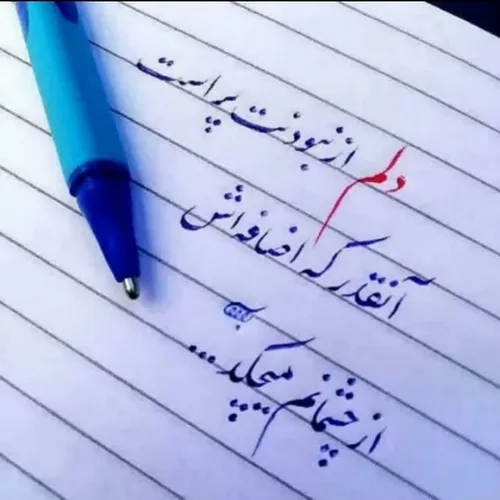 دلم از نبودنت پر است
آنقدر که اضافه‌اش
از چشمانم میچکد...